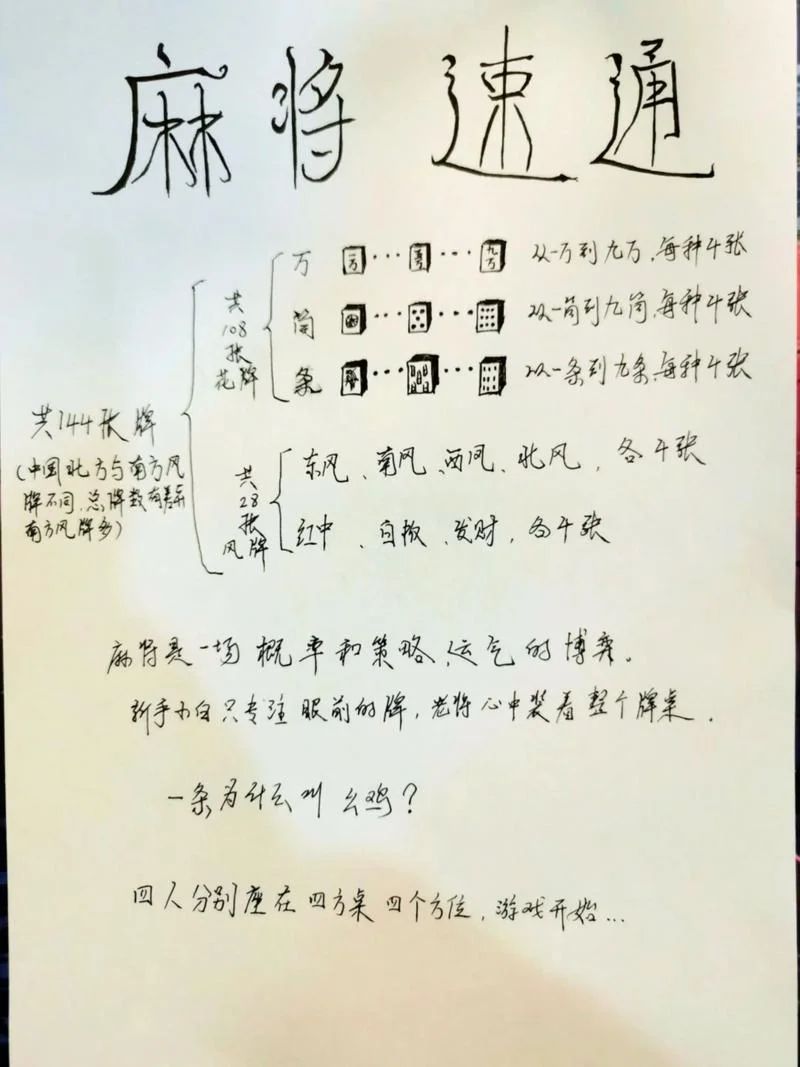 麻将 速通
万 一万…五…九万 从一万到九万,每种4张
共108张花牌
筒 … … 从一筒到九筒,每种4张
条 … … 从一条到九条,每种4张
共144张牌
(中国北方与南方风
牌不同,总牌数有差异
南方风牌多)
共28张风牌
东风、南风、西风、北风,各4张
红中、白板、发财,各4张
麻将是一场概率和策略、运气的博弈。
新手小白只专注眼前的牌,老将心中装着整个牌桌.
一条为什么叫幺鸡?
四人分别座在四方桌四个方位,游戏开始...